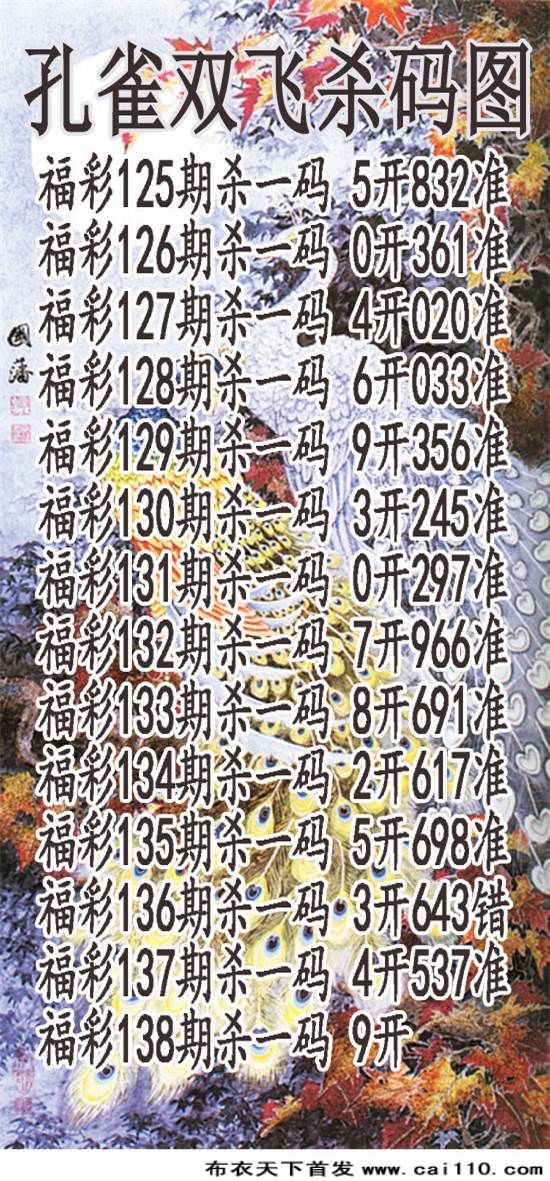 孔雀双飞杀码图
福彩125期杀一码 5开832准
福彩126期杀一码 0开361准
福彩127期杀一码 4开020准
福彩128期杀一码 6开033准
福彩129期杀一码 9开356准
福彩130期杀一码 3开245准
福彩131期杀一码 0开297准
福彩132期杀一码 7开966准
福彩133期杀一码 8开691准
福彩134期杀一码 2开617准
福彩135期杀一码 5开698准
福彩136期杀一码 3开643错
福彩137期杀一码 4开537准
福彩138期杀一码 9开
國藩
布衣天下首发 www.cai110.com